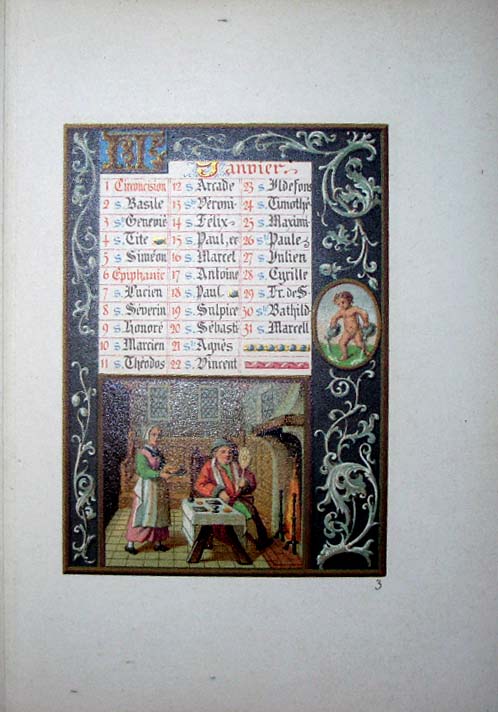 Janvier
1 Circoncision 12 S. Arcade 23 S. Ildefons
2 S. Basile 13 Ste Véroni 24 S. Timothé
3 Ste Genevié 14 S. Félix 25 S. Maximi
4 S. Tite 15 S. Paul, er 26 Ste Paule
5 S. Siméon 16 S. Marcel 27 S. Julien
6 Épiphanie 17 S. Antoine 28 S. Cyrille
7 S. Lucien 18 S. Paul 29 S. Fr. de S
8 S. Séverin 19 S. Sulpice 30 Ste Bathild
9 S. Honoré 20 S. Sébasti 31 S. Marcell
10 S. Marcien 21 Ste Agnès
11 S. Théodos 22 S. Vincent
3